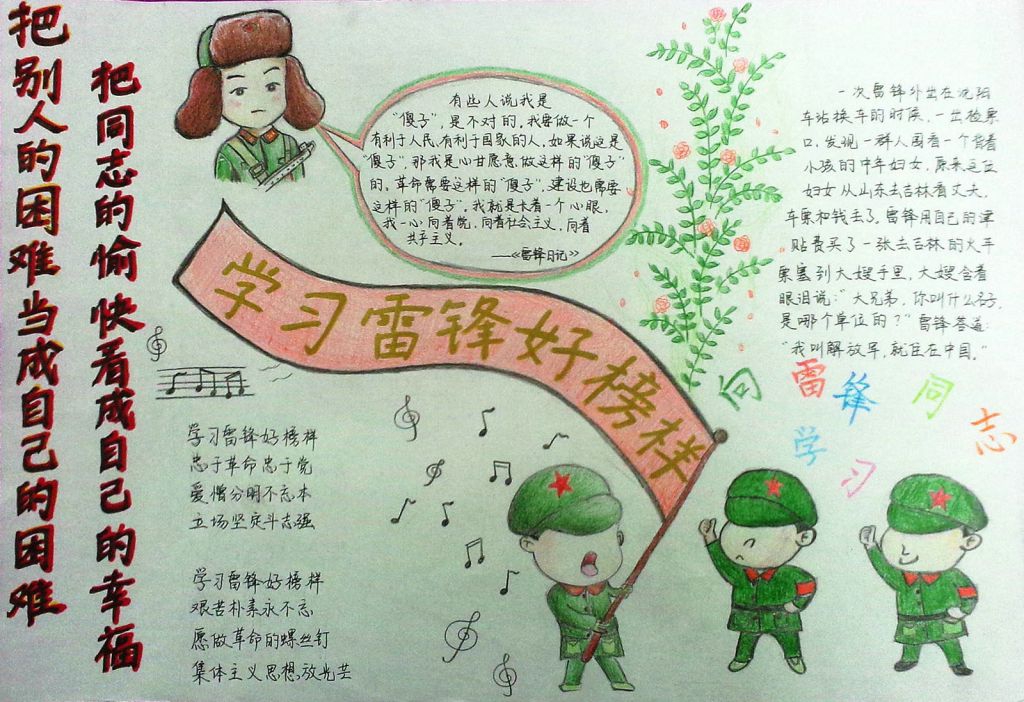 把别人的困难当成自己的困难
把同志的愉快看成自己的幸福
有些人说我是
“傻子”，是不对的，我要做一个
有利于人民，有利于国家的人，如果说这是
“傻子”，那我是心甘愿意做这样的“傻子”
的，革命需要这样的“傻子”，建设也需要
这样的“傻子”，我就是长着一个心眼，
我一心向着党，向着社会主义，向着
共产主义。
——《雷锋日记》
学习雷锋好榜样
一次雷锋外出在沈阳
车站换车的时候，一出检票
口，发现一群人围着一个背着
小孩的中年妇女，原来这位
妇女从山东去吉林看丈夫，
车票和钱丢了，雷锋用自己的津
贴费买了一张去吉林的火车
票塞到大嫂手里，大嫂含着
眼泪说：“大兄弟，你叫什么名字，
是哪个单位的？”雷锋答道：
“我叫解放军，就住在中国。”
向雷锋同志
学习
学习雷锋好榜样
忠于革命忠于党
爱憎分明不忘本
立场坚定斗志强
学习雷锋好榜样
艰苦朴素永不忘
愿做革命的螺丝钉
集体主义思想放光芒